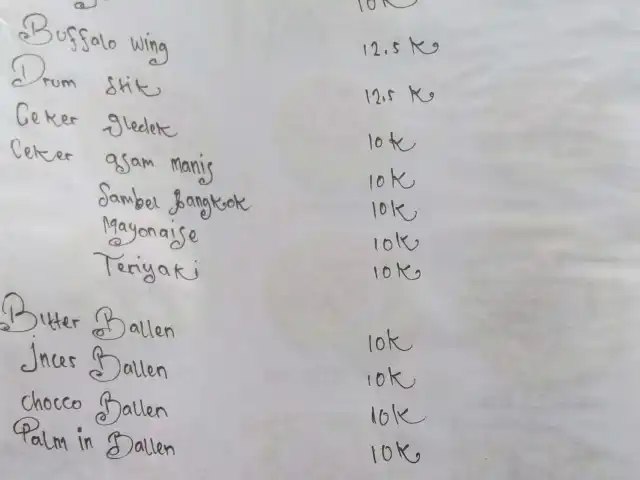 10K
Buffalo wing 12.5 K
Drum stik 12.5 K
Ceker gledek 10K
Ceker asam manis 10K
Sambel bangkok 10K
Mayonaise 10K
Teriyaki 10K
Bitter Ballen 10K
Inces Ballen 10K
chocco Ballen 10K
Palm in Ballen 10K